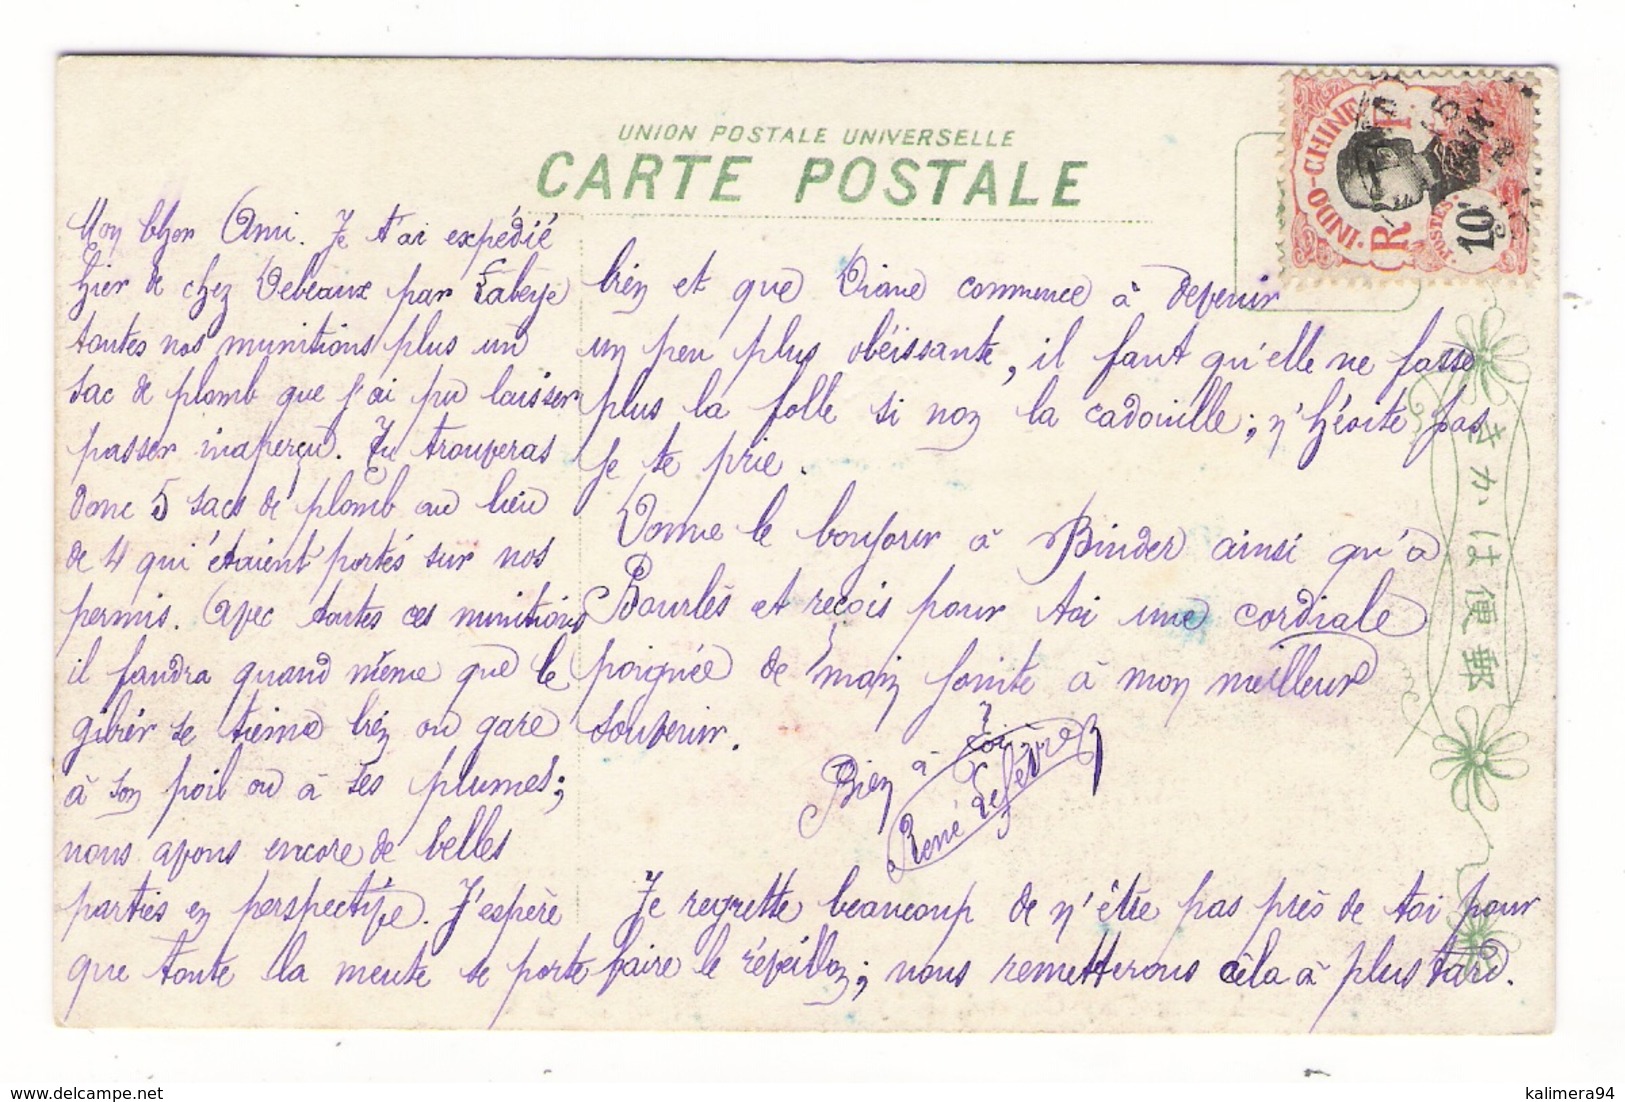 UNION POSTALE UNIVERSELLE
CARTE POSTALE
INDO-CHINE
R F
POSTES
10c
Mon Cher Ami. Je t'ai expédié
hier de chez Debeaux par Labeye
toutes nos munitions plus un
sac de plomb que j'ai pu laisser
passer inaperçu. Tu trouveras
donc 5 sacs de plomb au lieu
de 4 qui étaient portés sur nos
permis. Avec toutes ces munitions
il faudra quand même que le
gibier se tienne bien ou gare
à son poil ou à ses plumes;
nous avons encore de belles
parties en perspective. J'espère
que toute la meute se porte
bien et que Diane commence à devenir
un peu plus obéissante, il faut qu'elle ne fasse
plus la folle si non la cadouille; n'hésite pas
je te prie.
Donne le bonjour à Binder ainsi qu'à
Bourlès et reçois pour toi une cordiale
poignée de main jointe à mon meilleur
souvenir.
Bien à toi
René Lefèvre
Je regrette beaucoup de n'être pas près de toi pour
faire le réveillon; nous remetterons cela à plus tard.
きかは便郵
delcampe.net
kalimera94